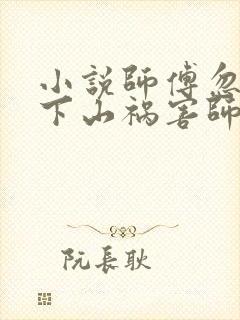 小説師傅忽
下山禍害師
阮長耿